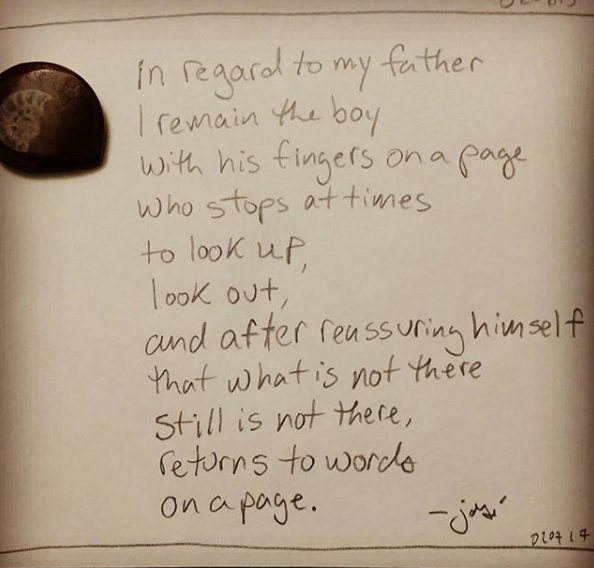 in regard to my father
I remain the boy
with his fingers on a page
who stops at times
to look up,
look out,
and after reassuring himself
that what is not there
still is not there,
returns to words
on a page.
-josé
020717